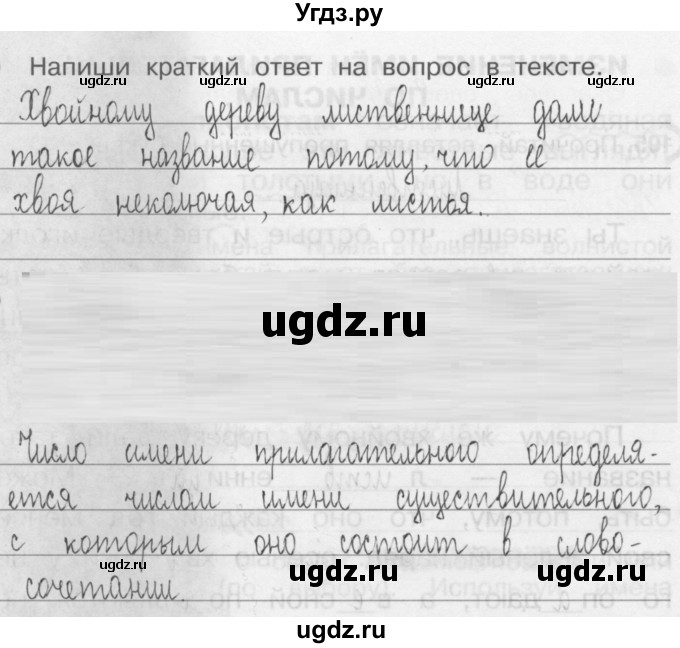 Угдз.ру
Напиши краткий ответ на вопрос в тексте.
Хвойному дереву лиственнице дали
такое название потому, что её
хвоя неколючая, как листья.
ugdz.ru
Число имени прилагательного определя-
ется числом имени существительного,
с которым оно состоит в слово-
сочетании.
ugdz.ru